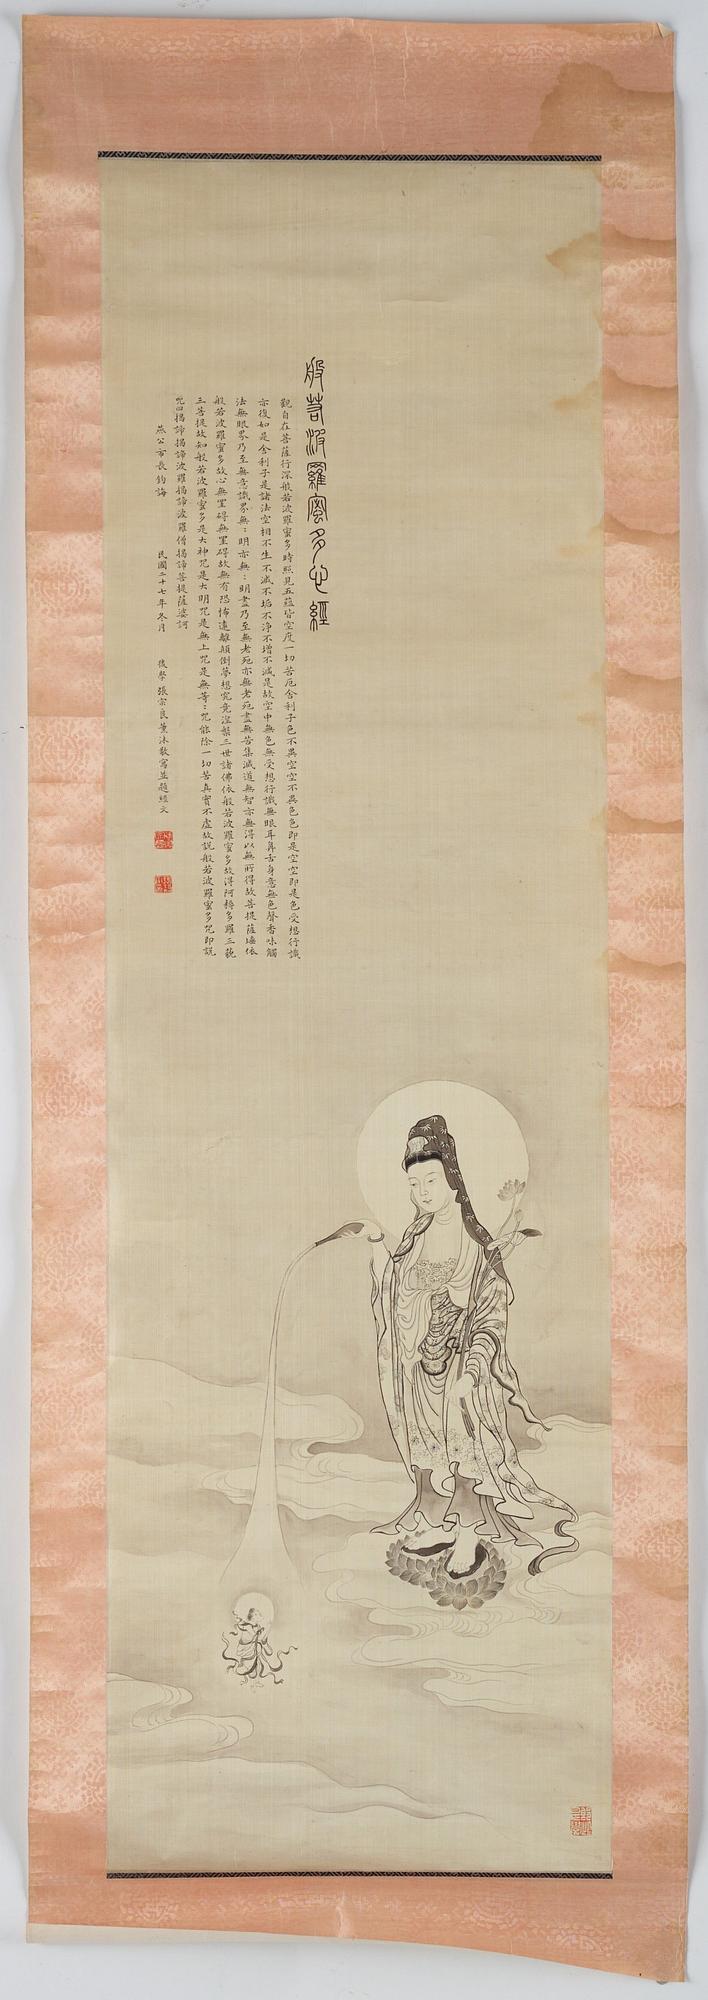 般若波羅蜜多心經
觀自在菩薩行深般若波羅蜜多時照見五蘊皆空度一切苦厄舍利子色不異空空不異色色即是空空即是色受想行識
亦復如是舍利子是諸法空相不生不滅不垢不淨不增不減是故空中無色無受想行識無眼耳鼻舌身意無色聲香味觸
法無眼界乃至無意識界無:明亦無:明盡乃至無老死亦無老死盡無苦集滅道無智亦無得以無所得故菩提薩埵依
般若波羅蜜多故心無罣礙無罣礙故無有恐怖遠離顛倒夢想究竟涅槃三世諸佛依般若波羅蜜多故得阿耨多羅三藐
三菩提故知般若波羅蜜多是大神咒是大明咒是無上咒是無等:咒能除一切苦真實不虛故說般若波羅蜜多咒即說
咒曰揭諦揭諦波羅揭諦波羅僧揭諦菩提薩婆訶
燕公市長鈞誨 民國二十七年冬月 後學張宗良薰沐敬寫並題經文